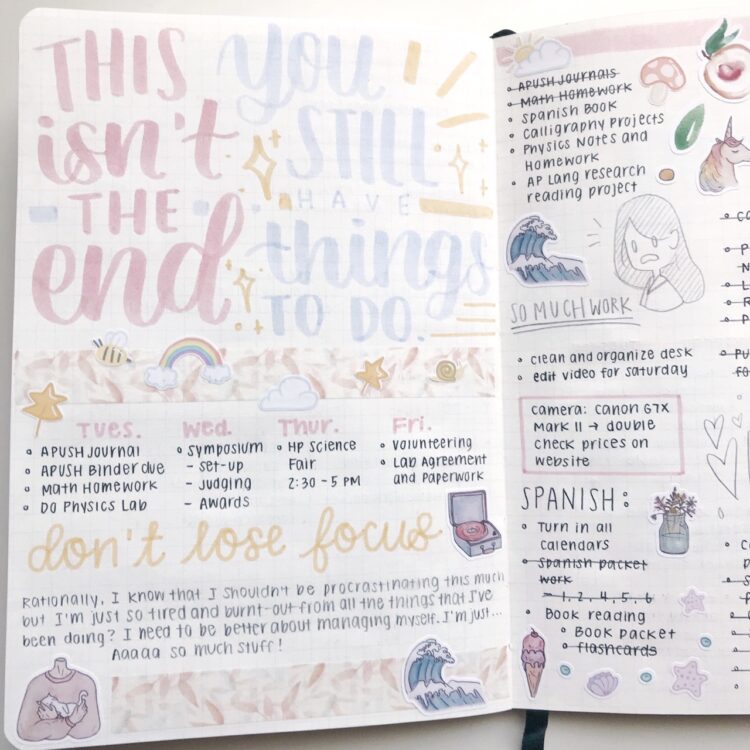 THIS
isn't
THE
end
you
STILL
HAVE
things
TO DO.
TUES.
APUSH JOURNAL
APUSH BINDER DUE
MATH HOMEWORK
DO PHYSICS LAB
WED.
SYMPOSIUM
- SET-UP
- JUDGING
- AWARDS
THUR.
HP SCIENCE
FAIR
2:30 - 5 PM
FRI.
VOLUNTEERING
LAB AGREEMENT
AND PAPERWORK
don't lose focus
Rationally, I know that I shouldn't be procrastinating this much
but I'm just so tired and burnt-out from all the things that I've
been doing? I need to be better about managing myself. I'm just...
Aaaaa so much stuff!
APUSH JOURNALS
MATH HOMEWORK
SPANISH BOOK
CALLIGRAPHY PROJECTS
PHYSICS NOTES AND
HOMEWORK
AP LANG RESEARCH
READING PROJECT
SO MUCH WORK
CLEAN AND ORGANIZE DESK
EDIT VIDEO FOR SATURDAY
CAMERA: CANON G7X
MARK II → DOUBLE
CHECK PRICES ON
WEBSITE
SPANISH:
TURN IN ALL
CALENDARS
SPANISH PACKET
WORK
- 1, 2, 4, 5, 6
BOOK READING
BOOK PACKET
FLASHCARDS